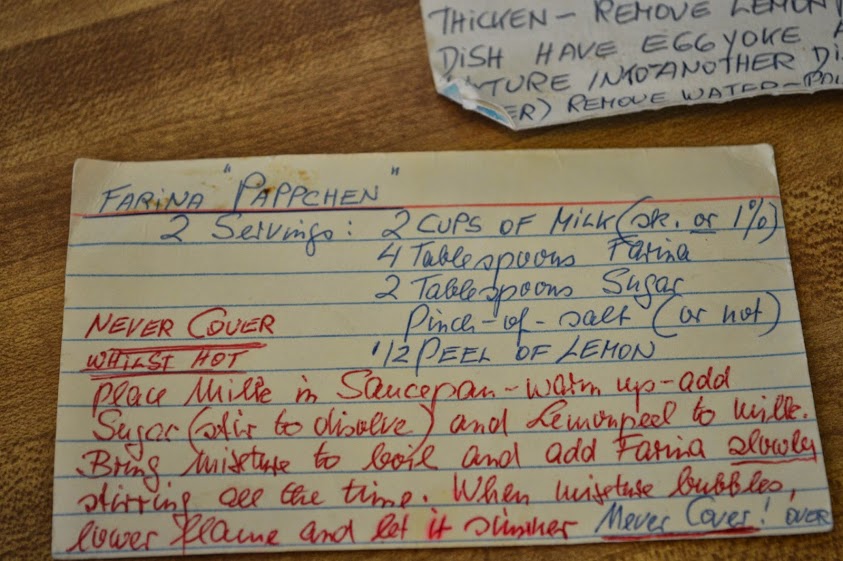 THICKEN - REMOVE LEMON
DISH HAVE EGGYOKE A
TURE INTO ANOTHER DI
ER) REMOVE WATER - POU
FARINA "PAPPCHEN"
2 Servings: 2 CUPS OF MILK (sk. or 1%)
4 Tablespoons Farina
2 Tablespoons Sugar
NEVER COVER Pinch-of-salt (or not)
WHILST HOT 1/2 PEEL OF LEMON
Place Milk in Saucepan - warm up - add
Sugar (stir to disolve) and Lemonpeel to milk.
Bring mixture to boil and add Farina slowly
stirring all the time. When mixture bubbles,
lower flame and let it simmer Never Cover! OVER